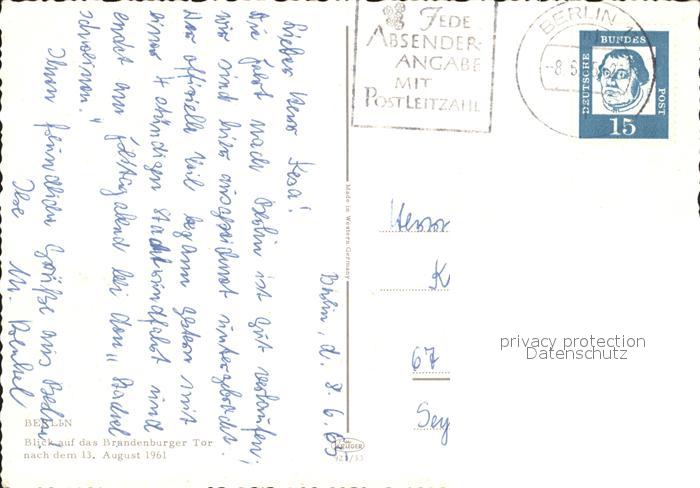 JEDE
ABSENDER-
ANGABE
MIT
POSTLEITZAHL
BERLIN
-8.6.
DEUTSCHE
BUNDES
POST
15
Berlin, d. 8.6.65
Lieber Herr Kesa!
Die Fahrt nach Berlin ist gut verlaufen;
wir sind hier ausgezeichnet untergebracht.
Der offizielle Teil begann gestern mit
einer 4 stündigen Stadtrundfahrt und
endet am Festagabend bei den "Stachel
schweinen."
Ihnen freundliche Grüße aus Berlin!
Ihre
Made in Western Germany
Herrn
K
67
Sey
privacy protection
Datenschutz
BERLIN
Blick auf das Brandenburger Tor
nach dem 13. August 1961
KRÜGER